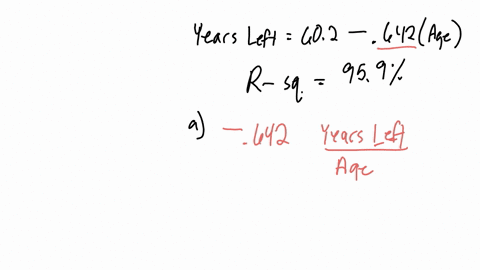 Years Left = 60.2 - .642 (Age)
R-sq. = 95.9%
a) -.642 Years Left
Age